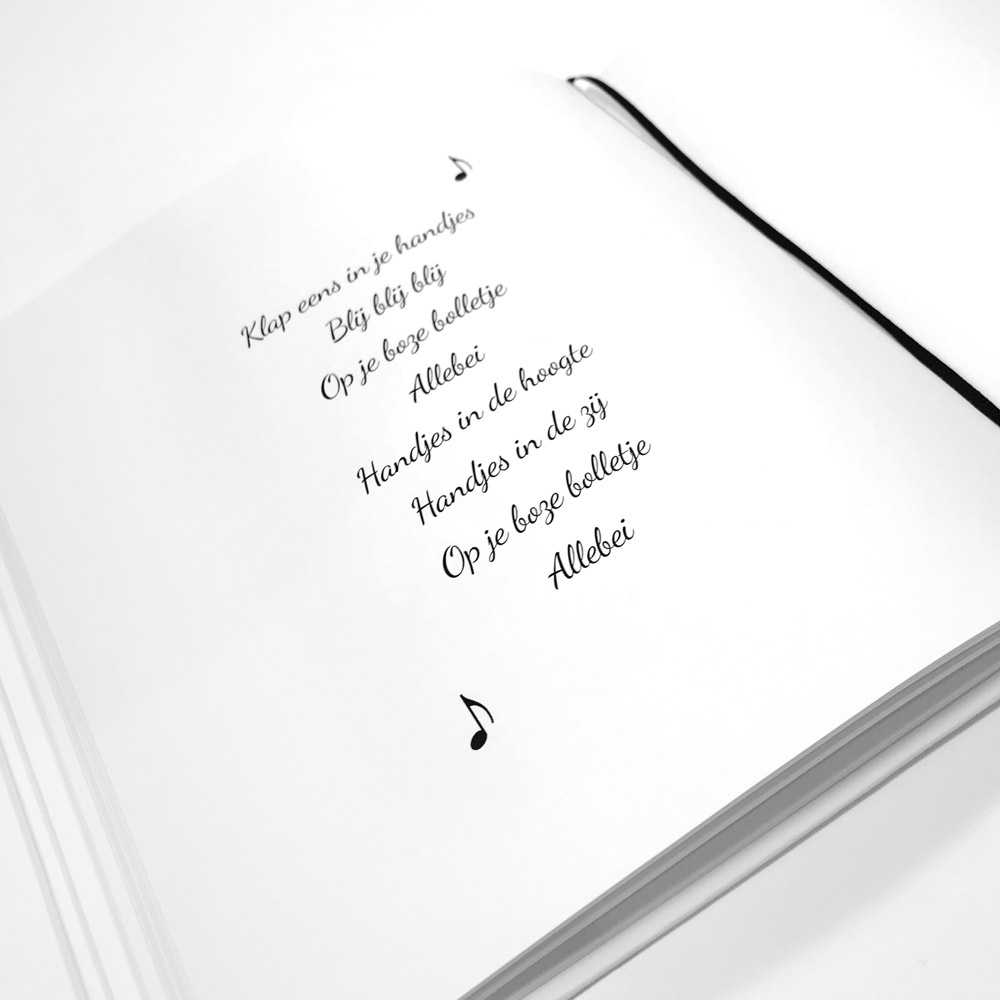 Klap eens in je handjes
Blij blij blij
Op je boze bolletje
Allebei
Handjes in de hoogte
Handjes in de zij
Op je boze bolletje
Allebei